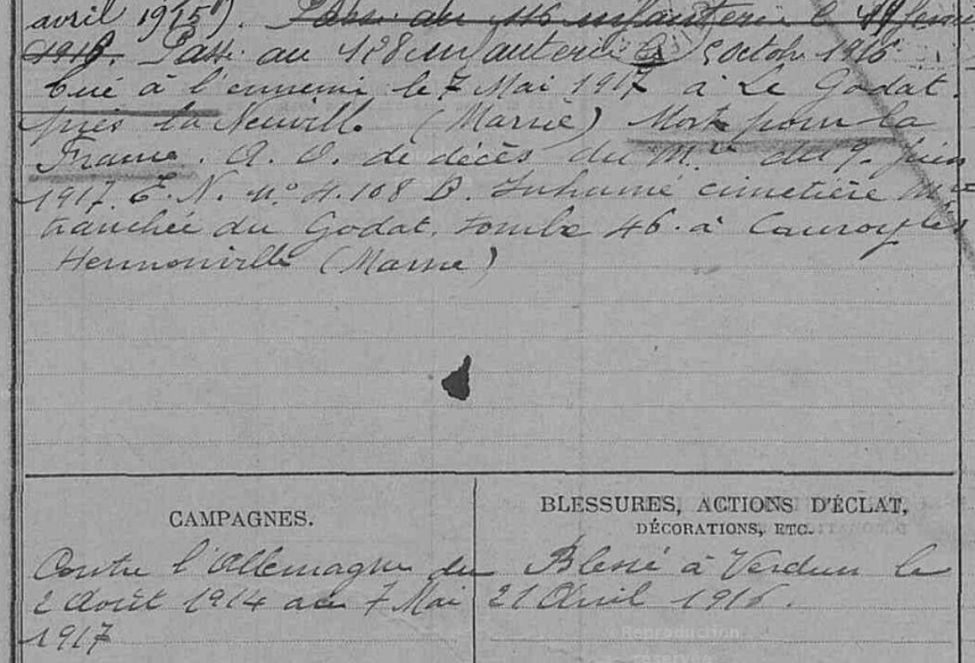 avril 1915). Passé au 116 infanterie le
1916. Passé au 128 infanterie le 5 octob 1916
Tué à l'ennemi le 7 Mai 1917 à Le Godat.
près la Neuville (Marne) Mort pour la
France. A. O. de décès du M.re du 9. juin
1917. E. N. n° H. 108 B. Inhumé cimetière M.re
tranchée du Godat, tombe 46. à Cauroy les
Hermonville (Marne)
CAMPAGNES.
Contre l'Allemagne du
2 Août 1914 au 7 Mai
1917
BLESSURES, ACTIONS D'ÉCLAT,
DÉCORATIONS, ETC.
Blessé à Verdun le
21 Avril 1916.
Reproduction